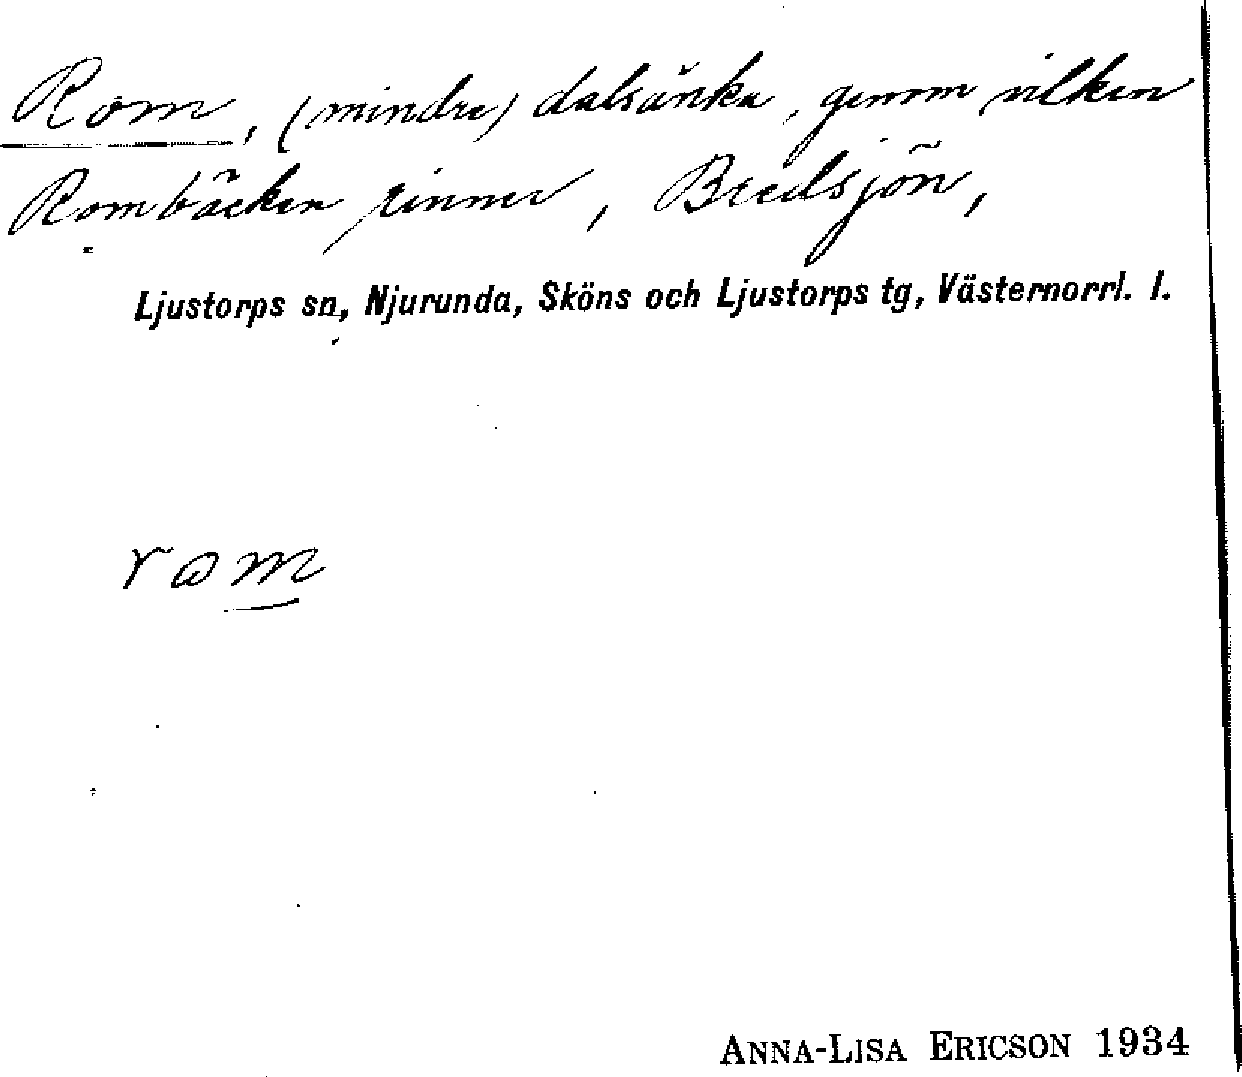 Rom, (mindre) dalsänka, genom vilken
Rombäcken rinner, Bredsjön,
Ljustorps sn, Njurunda, Sköns och Ljustorps tg, Västernorrl. l.
rɷm
ANNA-LISA ERICSON 1934